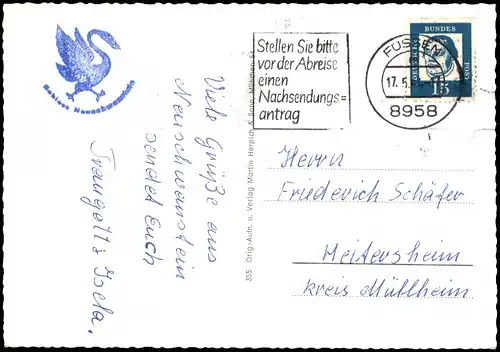 Schloss Neuschwanstein
Viele Grüße aus
Neuschwanstein
sendet Euch
Traugott & Isela.
355 Orig.-Aufn. u. Verlag Martin Herpich & Sohn, München 54
Stellen Sie bitte
vor der Abreise
einen
Nachsendungs=
antrag
FÜSSEN
17.5.
8958
DEUTSCHE
BUNDES
POST
15
Herrn
Friederich Schäfer
Heitersheim
kreis Müllheim